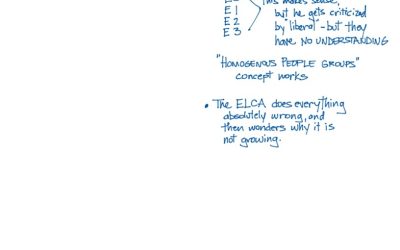 This makes sense,
E 1 but he gets criticized
E 2 by "liberal" - but they
E 3 have NO UNDERSTANDING
"HOMOGENOUS PEOPLE GROUPS"
concept works
• The ELCA does everything
absolutely wrong, and
then wonders why it is
not growing.